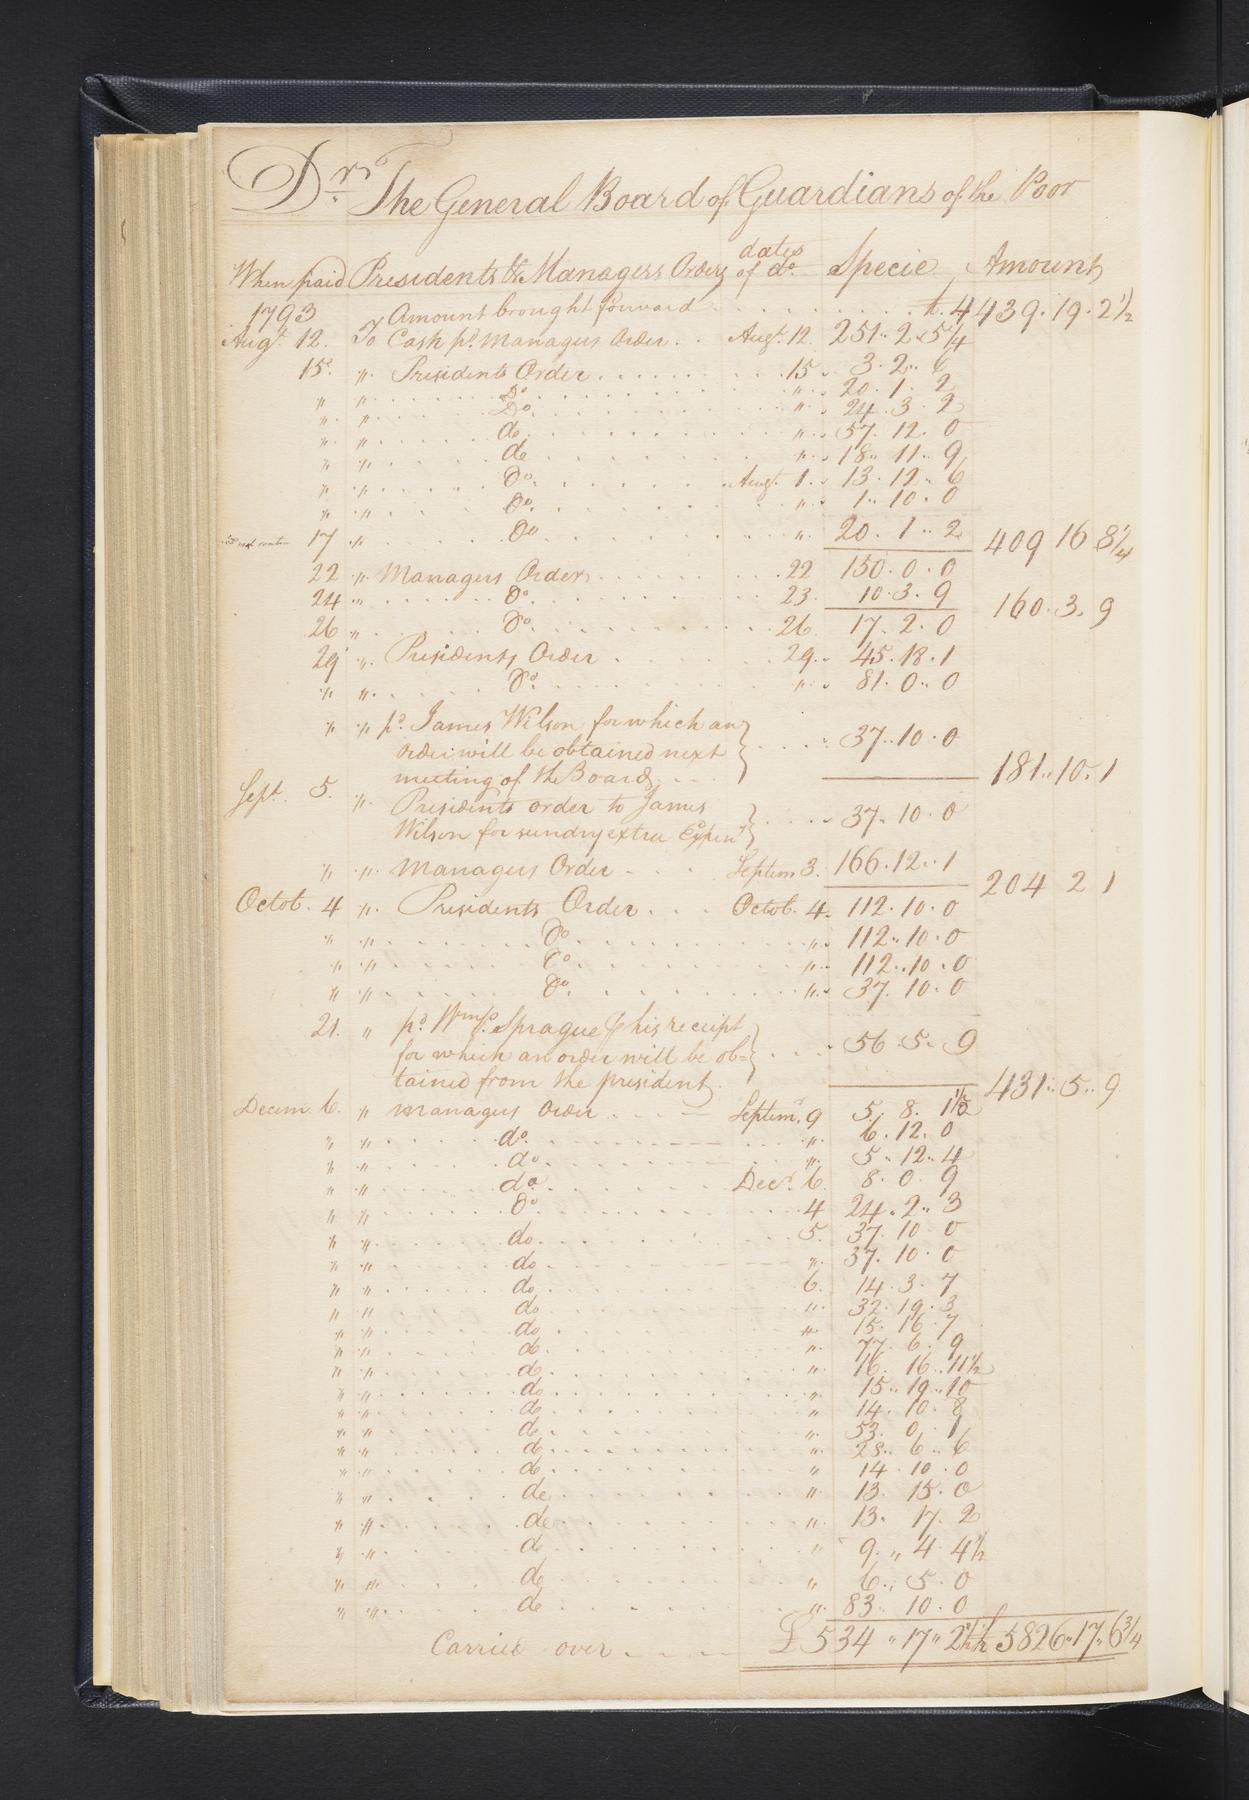 Drs The General Board of Guardians of the Poor
When paid Presidents & Managers Orders dates of do. Specie Amount
1793 Amount brought forward . . . . . 4439.19.2½
Augt. 12. To Cash pd. Managers Order . . Augt. 12. 251..2.5¼
15. " Presidents Order . . . . 15 . 3.2..6
" " Do. " 20.1.2
" " Do. " 24.3.2
" " do. " 57.12.0
" " do " 18..11..9
" " Do. Augt. 1. 13.12..6
" " Do. " 1..10.0
17 " Do " 20.1..2 409 16 8¼
22 " Managers Order . . . 22 150.0.0
24 " Do. 23. 10.3.9 160.3.9
26 " Do. 26. 17.2.0
29 " Presidents Order . 29. 45.18.1
" " Do. " 81.0..0
" " pd. James Wilson for which an
order will be obtained next . . . . 37..10.0
meeting of the Board . . . 181..10.1
Sept. 5. " Presidents order to James
Wilson for sundry extra Expens . . . . 37.10.0
" " Managers Order . . . Septem 3. 166.12..1 204 2 1
Octob. 4 " Presidents Order . . . Octob. 4. 112.10.0
" " Do. " 112..10.0
" " Do. " 112..10.0
" " Do. " 37.10.0
21. " pd. Wm. Sprague his receipt
for which an order will be ob= . . . 56.5..9
tained from the president. 431..5..9
Decem. 6. " Managers Order . . . Septem. 9 5.8.1½
" " do. " 6.12.0
" " do. " 5..12..4
" " do. Decr. 6. 8.0.9
" " Do. 4 24.2..3
" " do. 5. 37.10 0
" " do. " 37.10.0
" " do. 6. 14.3.7
" " do. " 32.19.3
" " do. " 15.16.7
" " do. " 77.6.9
" " do. " 16.16..11½
" " do. " 15..19..10
" " do. " 14.10.8
" " do. " 53.0.1
" " do. " 28..6..6
" " do. " 14.10.0
" " do. " 13.15.0
" " do. " 13.17.2
" " do. " 9.,,4 4½
" " do. " 6.,5.0
" " do. " 83.10.0
Carried over . . . . £534 " 17 " 2½ 5826..17..6¾